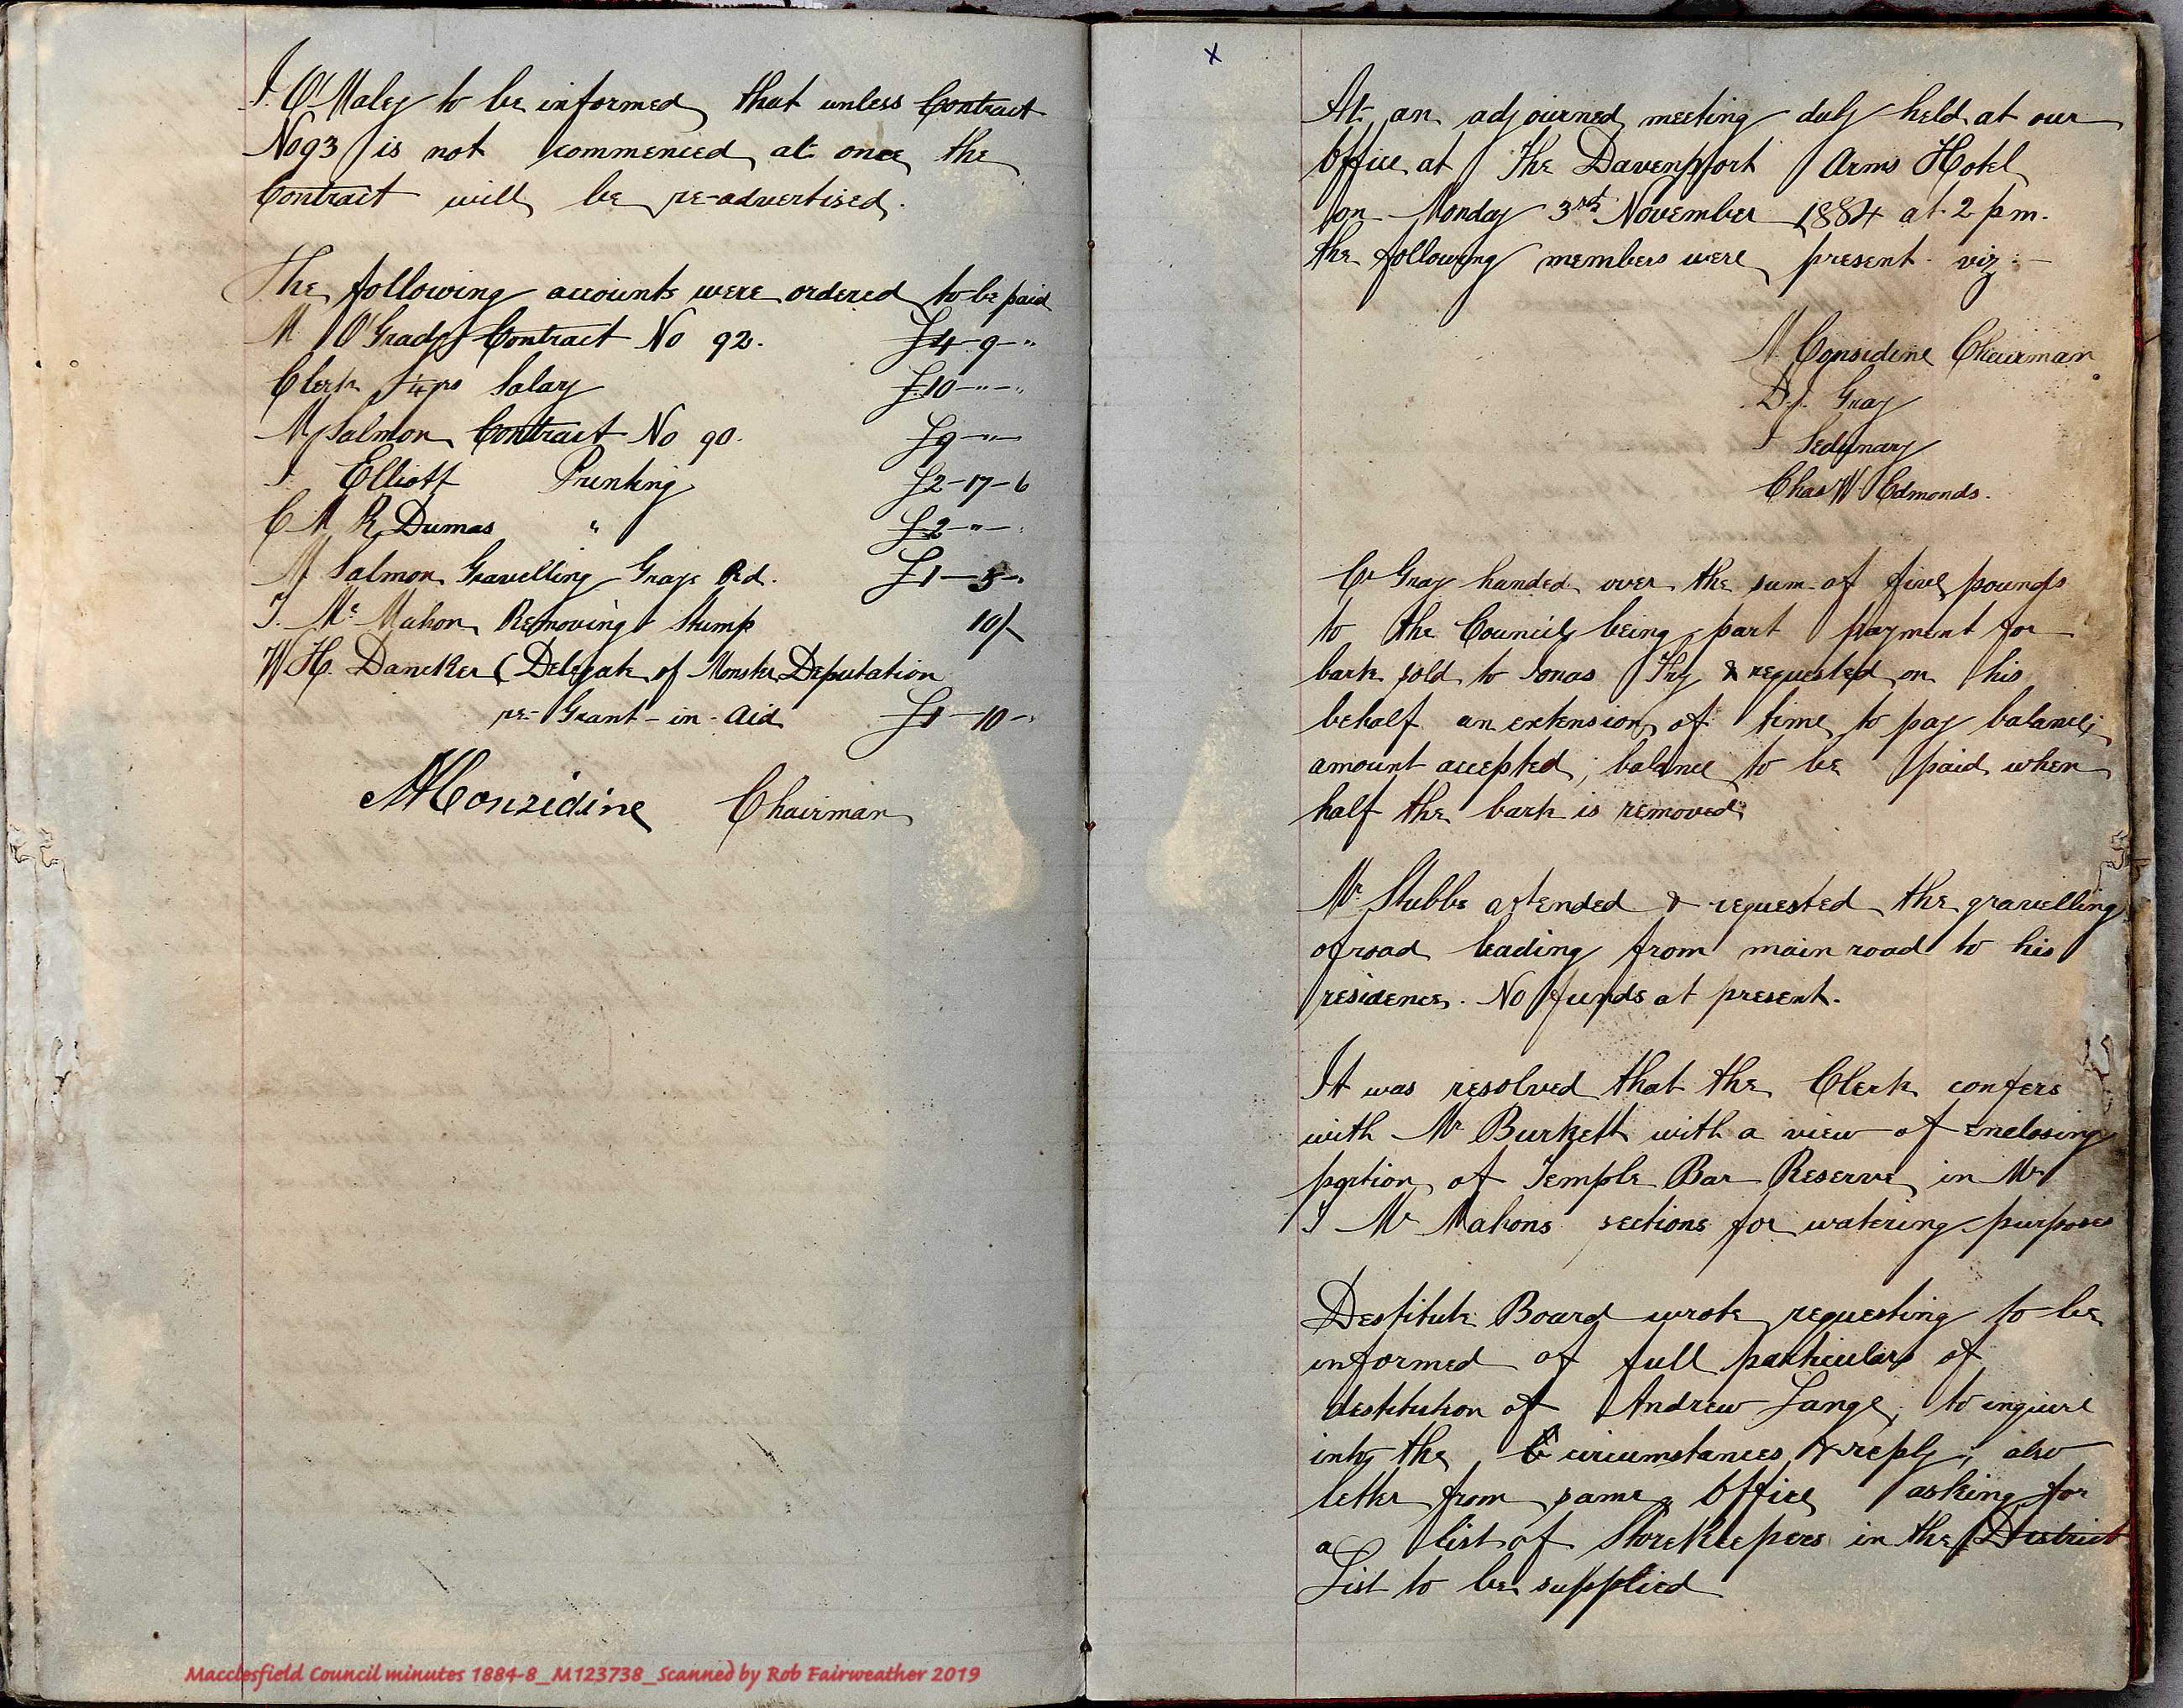 J. O'Maley to be informed that unless Contract
No 93 is not commenced at once the
Contract will be re-advertised.
The following accounts were ordered to be paid
M O'Grady Contract No 92. £4-9-"
Clerk 1/4 yrs Salary £10-"-"
M Salmon Contract No 90. £9-"-
J. Elliott Printing £2-17-6
C M R Dumas " £2-"-
M Salmon Gravelling Grays Rd. £1-5-"
T. Mc Mahon Removing Stump 10/-
W H. Dancker (Delegate of Monster Deputation
re- Grant-in-Aid £1-10-"
M Considine Chairman
x
At an adjourned meeting duly held at our
Office at The Davenport Arms Hotel
on Monday 3rd November 1884 at 2 pm.
the following members were present. viz:-
M. Considine Chairman
D. J. Gray
J Sedunary
Chas W Edmonds.
Cr Gray handed over the sum of five pounds
to the Council being part payment for
bark sold to Jonas Thy & requested on his
behalf an extension of time to pay balance;
amount accepted; balance to be paid when
half the bark is removed.
Mr Stubbs attended & requested the gravelling
of road leading from main road to his
residence. No funds at present.
It was resolved that the Clerk confers
with Mr Burkett with a view of enclosing
portion of Temple Bar Reserve in Mr
T Mc Mahons sections for watering purposes
Destitute Board wrote requesting to be
informed of full particulars of
destitution of Andrew Lange; to inquire
into the circumstances & reply; also
letter from same Office asking for
a list of Storekeepers in the District
List to be supplied
Macclesfield Council minutes 1884-8_M123738_Scanned by Rob Fairweather 2019